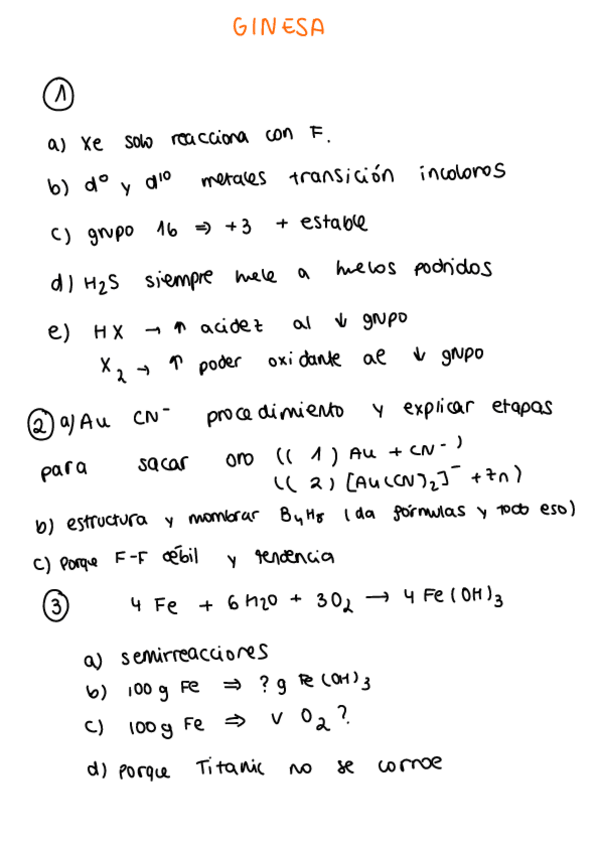 GINESA
①
a) Xe solo reacciona con F.
b) d⁰ y d¹⁰ metales transición incoloros
c) grupo 16 ⇒ +3 + estable
d) H₂S siempre huele a huevos podridos
e) HX → ↑ acidez al ↓ grupo
X₂ → ↑ poder oxidante al ↓ grupo
② a) Au CN⁻ procedimiento y explicar etapas
para sacar oro (( 1 ) Au + CN⁻ )
(( 2 ) [Au(CN)₂]⁻ + Zn )
b) estructura y nombrar B₄H₈ (da fórmulas y todo eso)
c) porque F-F débil y tendencia
③ 4 Fe + 6 H2O + 3O₂ → 4 Fe(OH)₃
a) semirreacciones
b) 100 g Fe ⇒ ? g Fe(OH)₃
c) 100 g Fe ⇒ V O₂ ?
d) porque Titanic no se corroe